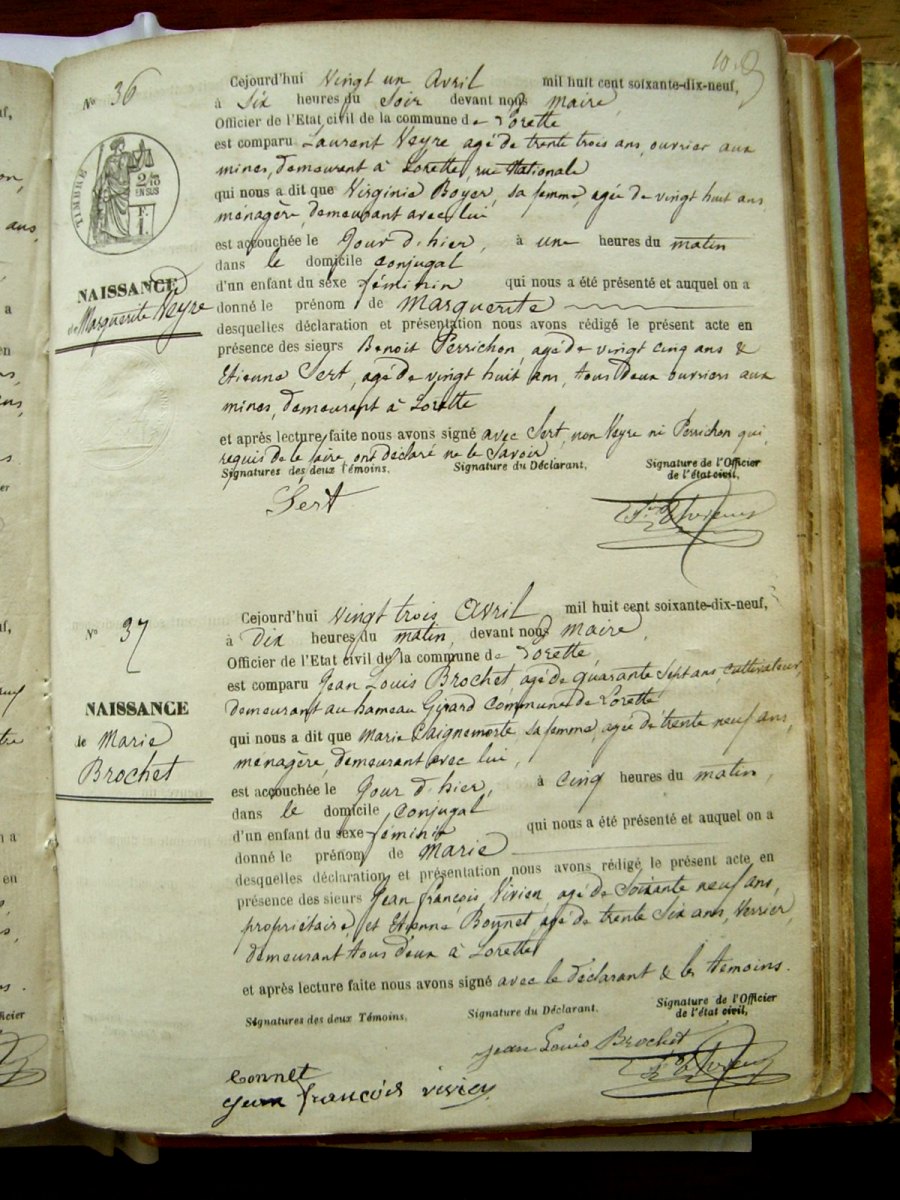 10
N° 36
Cejourd'hui Vingt un Avril mil huit cent soixante-dix-neuf,
à Six heures du Soir devant nous Maire,
Officier de l'Etat civil de la commune de Lorette
est comparu Laurent Veyre agé de trente trois ans, ouvrier aux
mines, demeurant à Lorette, rue Nationale
qui nous a dit que Virginie Boyer, sa femme, agée de vingt huit ans
ménagère, demeurant avec lui
est accouchée le Jour d'hier, à une heures du matin
dans le domicile conjugal
d'un enfant du sexe féminin qui nous a été présenté et auquel on a
donné le prénom de Marguerite
desquelles déclaration et présentation nous avons rédigé le présent acte en
présence des sieurs Benoit Perrichon, agé de vingt cinq ans &
Etienne Sert, agé de vingt huit ans, tous deux ouvriers aux
mines, demeurant à Lorette
et après lecture faite nous avons signé avec Sert, non Veyre ni Perrichon qui,
requis de le faire, ont déclaré ne le savoir
Signatures des deux témoins. Signature du Déclarant, Signature de l'Officier
de l'état civil,
Sert
TIMBRE
2/10
EN SUS
F.
1.
NAISSANCE
de Marguerite Veyre
N° 37
Cejourd'hui Vingt trois Avril mil huit cent soixante-dix-neuf,
à Dix heures du matin, devant nous Maire,
Officier de l'Etat civil de la commune de Lorette,
est comparu Jean Louis Brochet, agé de quarante sept ans, cultivateur,
demeurant au hameau Girard Commune de Lorette,
qui nous a dit que Marie Caignemorte, sa femme, agée de trente neuf ans,
ménagère, demeurant avec lui,
est accouchée le Jour d'hier, à cinq heures du matin,
dans le domicile conjugal
d'un enfant du sexe féminin qui nous a été présenté et auquel on a
donné le prénom de Marie
desquelles déclaration et présentation nous avons rédigé le présent acte en
présence des sieurs Jean François Vivien, agé de Soixante neuf ans,
propriétaire, et Etienne Bonnet, agé de trente Six ans, Verrier,
demeurant tous deux à Lorette
et après lecture faite nous avons signé avec le déclarant & les témoins.
Signatures des deux Témoins, Signature du Déclarant, Signature de l'Officier
de l'état civil,
Jean Louis Brochet
bonnet
jean françois vivien
NAISSANCE
de Marie
Brochet